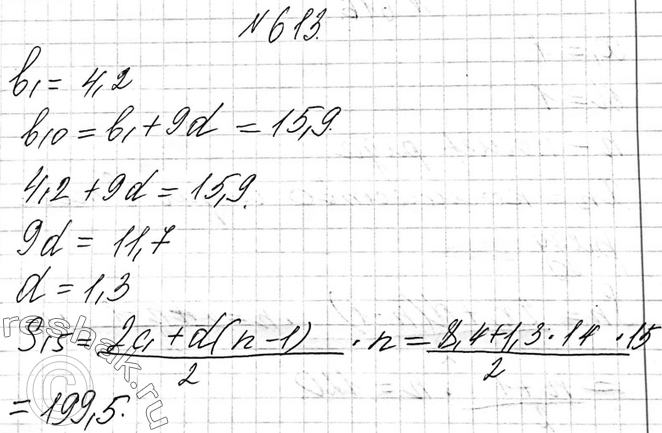 N 613.
b₁ = 4,2
b₁₀ = b₁ + 9d = 15,9.
4,2 + 9d = 15,9.
9d = 11,7
d = 1,3
S₁₅ = (2a₁ + d(n-1))/2 · n = (8,4 + 1,3 · 14)/2 · 15
= 199,5.
reshak.ru